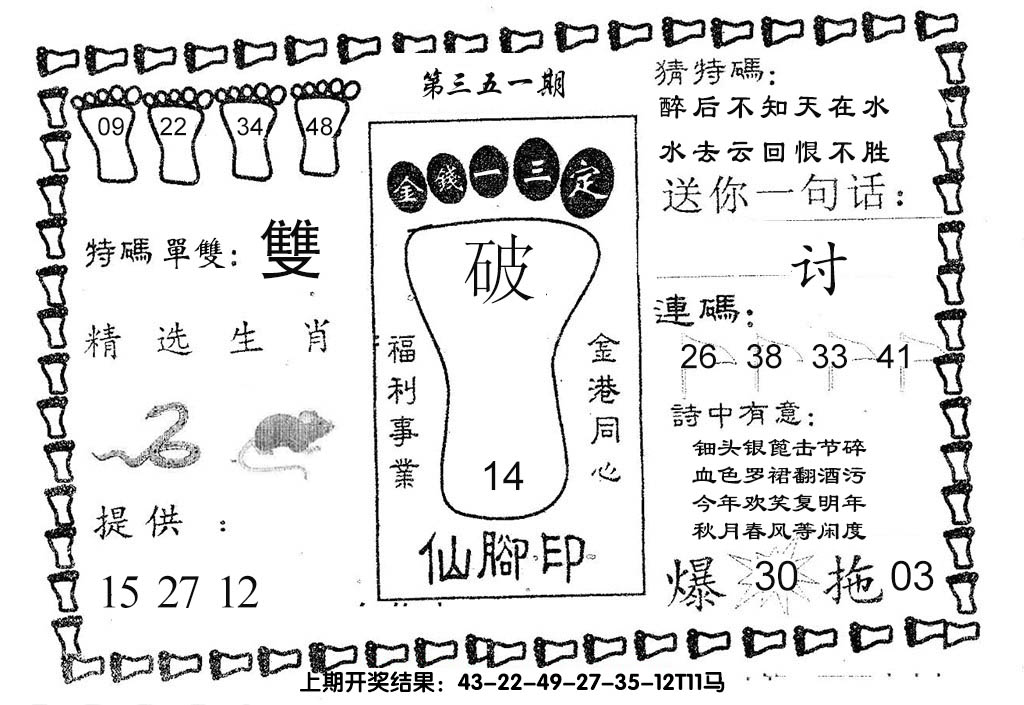 第三五一期
09 22 34 48
特碼單雙：雙
精选生肖
提供：
15 27 12
金錢一三定
破
福利事業
金港同心
14
仙腳印
猜特碼：
醉后不知天在水
水去云回恨不胜
送你一句话：
讨
連碼：
26 38 33 41
詩中有意：
钿头银篦击节碎
血色罗裙翻酒污
今年欢笑复明年
秋月春风等闲度
爆 30 拖 03
上期开奖结果：43-22-49-27-35-12T11马